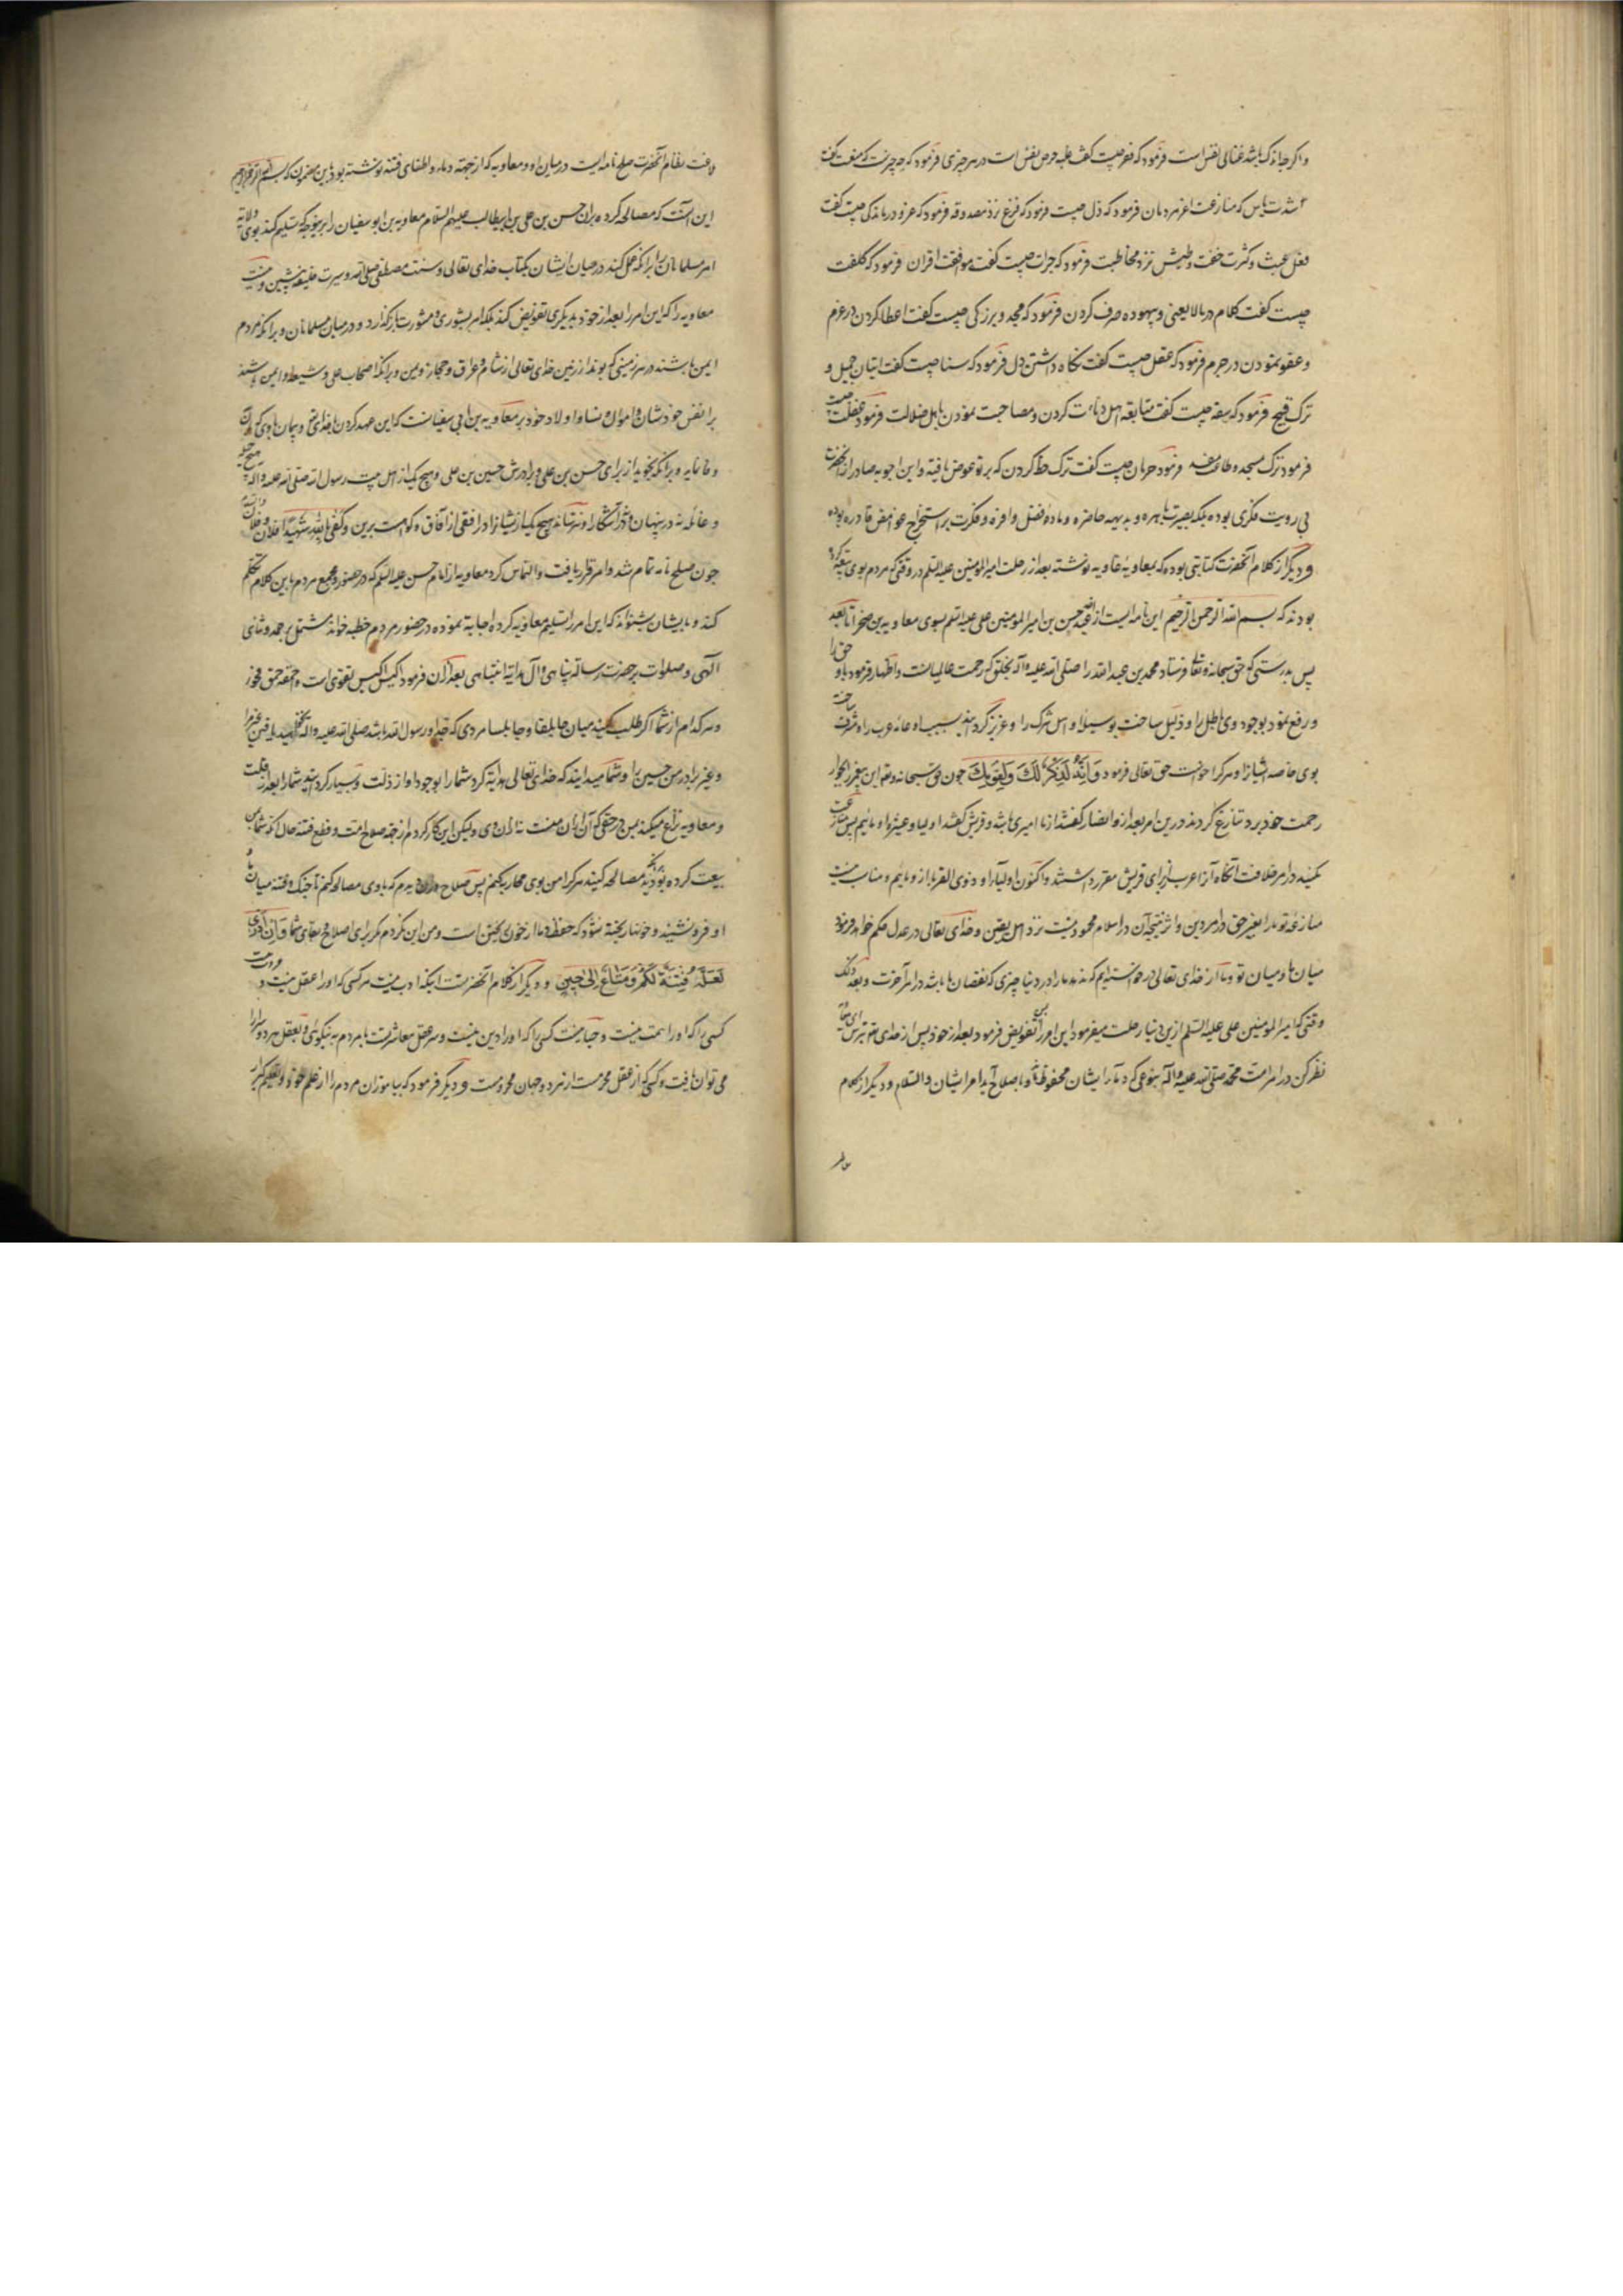 و اگر چه اندک باشد غنای نفس است فرمود که فقر چیست گفت غلبه حرص نفس است در هر چیزی فرمود که چه چیز است که منعت گفت
شدت باس که منازعت اعز مردمان فرمود که ذل چیست فرمود که فزع نزد مصدوقه فرمود که عز و درماندگی چیست گفت
فعل عبث و کثرت خفت و طیش نزد مخاطبت فرمود که جرات چیست گفت موافقت اقران فرمود که کلفت
چیست گفت کلام در مالایعنی و بیهوده صرف کردن فرمود که مجد و بزرگی چیست گفت اعطا کردن در غرم
و عفو نمودن در جرم فرمود که عقل چیست گفت نگاه داشتن دل فرمود که سنا چیست گفت اتیان جمیل و
ترک قبیح فرمود که سفه چیست گفت متابعة اهل دنائت کردن و مصاحبت نمودن باهل ضلالت فرمود غفلت چیست
فرمود ترک مسجد و طاعت مفسد فرمود حرمان چیست گفت ترک حظ کردن که بر تو عرض یافته و این اجوبه صادر از آنحضرت
بی رویت فکری بوده بلکه بصیرت باهره و بدیهه حاضره و ماده فضل وافره و فکرت بر استخراج غوامض قادره بوده
و دیگر از کلام آنحضرت کتابتی بوده که بمعاویه غاویه نوشته بعد از رحلت امیرالمومنین علیه السلم در وقتی که مردم بوی بیعت کرده
بودند که بسم الله الرحمن الرحیم این نامه ایست از عبدالله حسن بن امیرالمومنین علی علیه السلم بسوی معاویه بن صخر اما بعد
پس بدرستی که حق سبحانه و تعالی فرستاد محمد بن عبدالله را صلی الله علیه و آله بخلق که رحمت عالمیانست و اظهار فرمود باو حق را
و رفع نمود بوجود وی باطل را و ذلیل ساخت بوسیله او اهل شرک را و عزیز گردانید بسبب او عامه عرب را و شرف ساخت
بوی خاصه ایشانرا و هر کرا خواست حق تعالی فرمود وَاِنَّهُ لَذِكْرٌ لَكَ وَلِقَوْمِكَ چون حق سبحانه و تعالی این پیغمبر را بجوار
رحمت خود برد تنازع کردند درین امر بعد از و انصار گفتند از ما امیری باشد و قریش گفتند اولیا و عشیره او مائیم پس منازعت
مکنید در امر خلافت آنگاه آنرا عرب از برای قریش مقرر داشتند و اکنون اولیاء او و ذوی القربا از و مائیم و مناسب نیست
منازعه تو با ما بغیر حق در امر دین و اثر نتیجه آن در اسلام محمود نیست نزد اهل یقین و خدای تعالی در عدل حکم خواهد فرمود
میان ما و میان تو و ما از خدای تعالی درخواسته ایم که ندهد ما را در دنیا چیزی که نقصان ما باشد در امر آخرت و بعد ذلک
وقتی که امیرالمومنین علی علیه السلم ازین دنیا رحلت میفرمود این امر را بمن تفویض فرمود بعد از خود پس از خدای بترس ای معاویه
نظر کن در امر امت محمد صلی الله علیه و آله بنوعی که دماء ایشان محفوظ و باصلاح آید امر ایشان والسلام و دیگر از کلام
بلاغت نظام آنحضرت صلح نامه ایست در میان او و معاویه که از جهة دماء و اطفای فتنه نوشته بودند باین مضمون که بسم الله الرحمن الرحیم
این آنست که مصالحه کرده بران حسن بن علی بن ابیطالب علیهم السلام معاویه بن ابو سفیان را برین وجه که تسلیم کند بوی ولایة
امر مسلمانان را بر آنکه عمل کند در میان ایشان بکتاب خدای تعالی و سنت مصطفی صلی الله و سیرت خلیفه پیشین و نیست
معاویه را که این امر را بعد از خود بدیگری تفویض کند بلکه امر بشوری و مشورت باز گذارد و در میان مسلمانان و بر آنکه مردم
ایمن باشند در هر زمینی که بوند از زمین خدای تعالی از شام و عراق و حجاز و یمن و بر آنکه اصحاب علی و شیعه او ایمن باشند
بر انفس خودشان و اموال و نساء و اولاد خود بر معاویه بن ابی سفیانست که این عهد کردن با خدای و پیمان با وی که بدان
وفا نماید و بر آنکه نجوید از برای حسن بن علی و برادرش حسین بن علی و هیچ یک از اهل بیت رسول الله صلی الله علیه و آله هیچ
و غائله نه در پنهان و نه در آشکارا و نترساند هیچ یک از ایشانرا در افقی از آفاق و گواهست برین و کفی بالله شهیدا فلان و فلان
چون صلح نامه تمام شد و امر قرار یافت و التماس کرد معاویه از امام حسن علیه السلم که در حضور مجمع مردم باین کلام تکلم
کند و بایشان بشنواند که این امر را تسلیم معاویه کرده اجابة نموده در حضور مردم خطبه خواند مشتمل بر حمد و ثنای
الهی و صلوات بر حضرت رسالت پناهی و آل هدایة انتباهی بعد از آن فرمود اکیس کیس تقوی است و احمق حمق فجور
و هر کدام از شما اگر طلب کنید میان جابلقا و جابلسا مردی که جد او رسول الله باشد صلی الله علیه و آله نخواهید یافت غیر مرا
و غیر برادر من حسین را و شما میدانید که خدای تعالی هدایة کرد شما را بوجود او از ذلت و بسیار گردانید شما را بعد از قلت
و معاویه نزاع میکند بمن در حقی که آن از آن منست نه از آن وی ولیکن این کار کردم از جهة صلاح امت و قطع فتنه حال آنکه شما بمن
بیعت کرده بودید که مصالحه کنید هر کرا من بوی محاربه نکنم پس صلاح دران دیدم که با وی مصالحه کنم تا جنک و فتنه میان ما و
او فرو نشیند و خونها ریخته نشود که حفظ دما از خون ریختن است و من این نکردم مگر برای اصلاح و بقای شما وَاِنْ اَدْرِی
لَعَلَّهُ فِتْنَةٌ لَكُمْ وَمَتَاعٌ اِلَى حِينٍ و دیگر از کلام آنحضرت اینکه ادب نیست هر کسی که او را عقل نیست و
کسی را که او را همت نیست و حیا نیست کسی را که او را دین نیست و سر عقل معاشرتست با مردم به نیکوئی و بعقل هر دو سرا را
می توان یافت و کسی که از عقل محرومست از هر دو جهان محرومست و دیگر فرمود که بیاموزان مردم را از علم خود و تعلیم گیر از